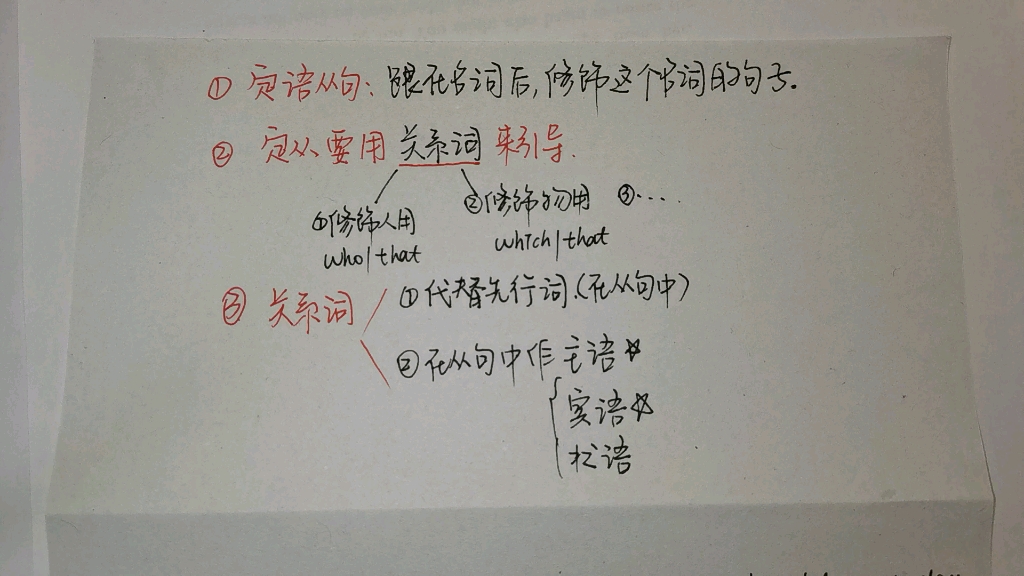 ① 定语从句: 跟在名词后,修饰这个名词的句子.
② 定从要用关系词来引导.
①修饰人用 ②修饰物用 ③····
who/that which/that
③ 关系词 ①代替先行词(在从句中)
②在从句中作主语☆
宾语☆
状语